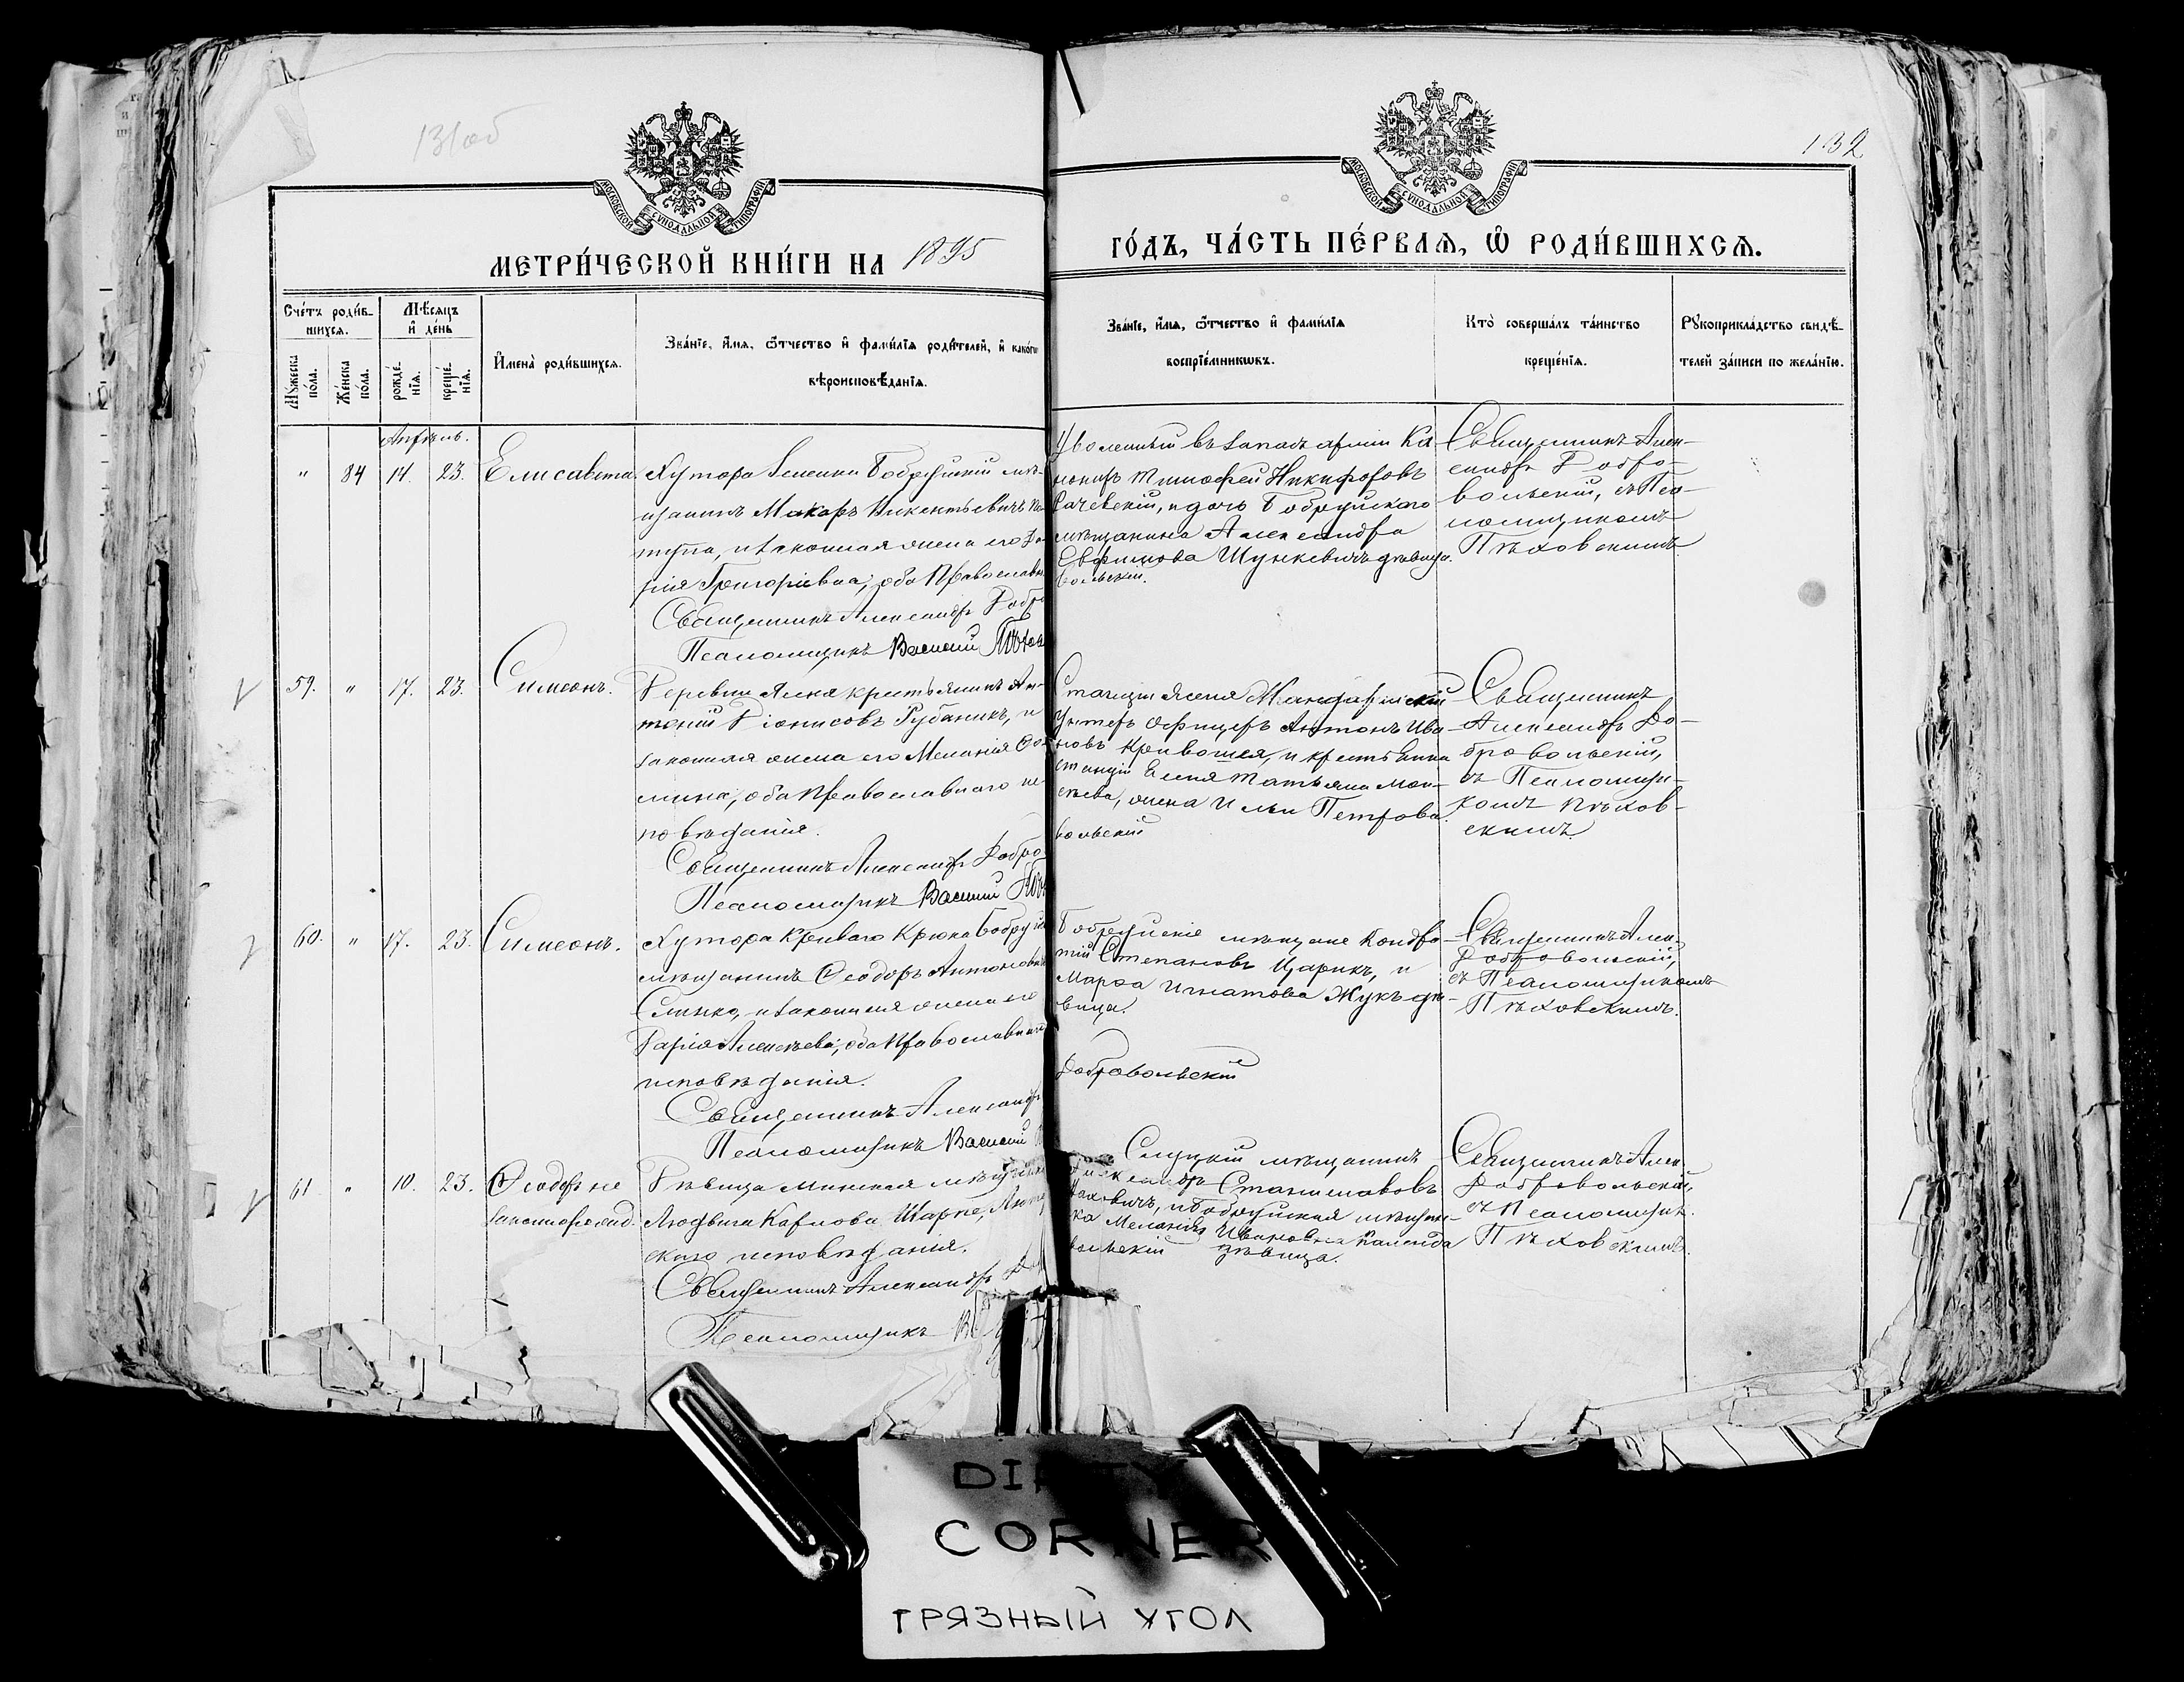 131об
132
МОСКОВСКОЙ СѴНОДАЛЬНОЙ ТИПОГРАФІИ
МОСКОВСКОЙ СѴНОДАЛЬНОЙ ТИПОГРАФІИ
МЕТРИ́ЧЕСКОЙ КНИ́ГИ НА 1895
ГО́ДЪ, ЧА́СТЬ ПЕ́РВАѦ, Ѽ РОДИ́ВШИХСѦ.
Сче́тъ роди́в-
шихся.
Мѣ́сяцъ
и҆ де́нь
Мꙋжеска
по́ла.
Же́нска
по́ла.
рожде́-
нїѧ.
креще́-
нїѧ.
И҆мена̀ роди́вшихсѧ.
Зва́нїе, и҆́мѧ, ѻ҆́тчество и҆ фами́лїѧ роди́телей, и҆ како́гѡ
вѣроисповѣ́данїѧ.
Зва́нїе, и҆́мѧ, ѻ҆́тчество и҆ фами́лїѧ
воспрїе́мникѡвъ.
Кто̀ соверша́лъ та́инство
креще́нїѧ.
Рꙋкоприкла́дство свидѣ́-
телей за́писи по жела́нїю.
Апрѣль.
" 84 14. 23. Елисавета.
Хутора Бобруйскій мѣ-
щанинъ Макаръ Викентьевичъ
и законная жена его Да-
рія Григоріевна, оба Православн
Священникъ Александръ Добро
Псаломщикъ Василий Пѣхов
Уволенный въ запасъ арміи Ка-
нониръ Тимофей Никифоровъ
и дочь Бобруйскаго
мѣщанина Александра
Евфимова Шункевичъ дѣвица.
вольскій.
Священникъ Алек-
сандръ Добро-
вольскій, съ Пса-
ломщикомъ
Пѣховскимъ
59. " 17. 23. Симеонъ.
Деревни Ясеня крестьянинъ Ан-
тоній Діонисовъ Рубаникъ, и
законная жена его Меланія
оба Православнаго ис-
повѣданія.
Священникъ Александръ Добро-
Псаломщикъ Василий Пѣх
Станціи Ясеня
Унтеръ Офицеръ Антонъ Ива-
новъ Кривошея, и крестьянка
станціи Ясеня Татьяна Мои-
сѣева, жена Ильи Петрова.
вольскій
Священникъ
Александръ До-
бровольскій,
съ Псаломщи-
комъ Пѣхов-
скимъ.
60. " 17. 23. Симеонъ.
Хутора Криваго Крюка Бобруй
мѣщанинъ Ѳеодоръ Антоновъ
и законная жена его
Дарія Алексѣева, оба Православнаго
исповѣданія.
Священникъ Александръ
Псаломщикъ Василий
Бобруйскіе мѣщане Кондра-
тій Степановъ Царикъ, и
Марѳа Игнатова Жукъ дѣ-
вица.
Добровольскій
Священникъ Алек.
Добровольскій,
съ Псаломщикомъ
Пѣховскимъ.
61 " 10. 23. Ѳеодоръ не
законнорожд.
Дѣвица Минская мѣщанка
Людвига Карлова Шарпе, Люте
скаго исповѣданія.
Священникъ Александръ Доб
Псаломщикъ В
Слуцкій мѣщанинъ
Александръ Станиславовъ
и Бобруйская мѣщан-
ка Меланія Иванова Календа
вольскій дѣвица.
Священникъ Алек.
Добровольскій,
съ Псаломщик.
Пѣховскимъ.
DIRTY
CORNER
ГРЯЗНЫЙ УГОЛ